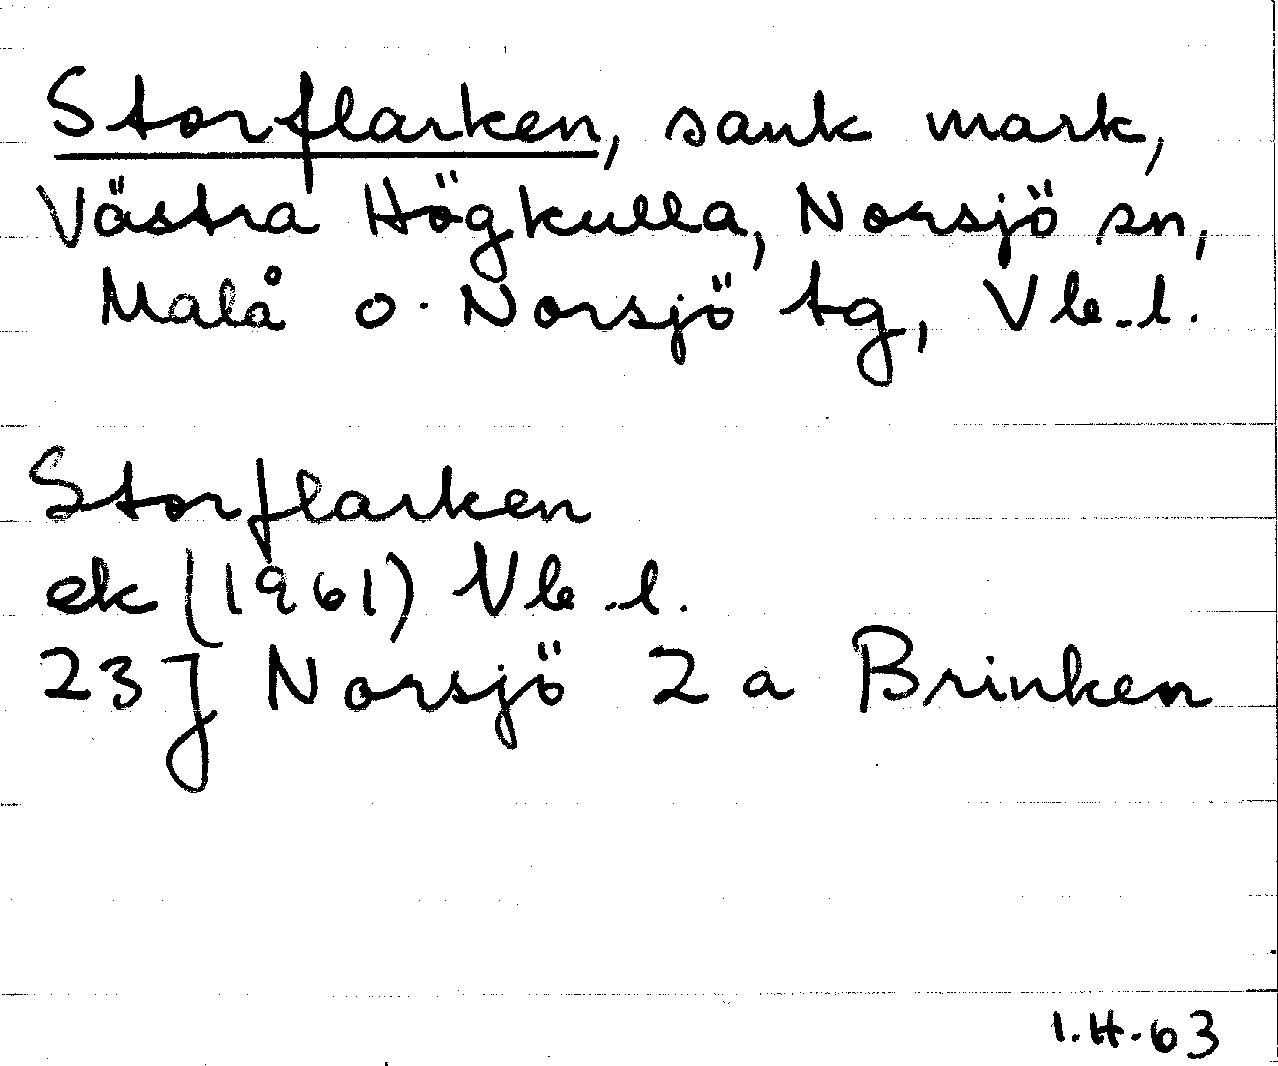 Storflarken, sank mark,
Västra Högkulla, Norsjö sn,
Malå o. Norsjö tg, Vb.l.
Storflarken
ek (1961) Vb.l.
23J Norsjö 2a Brinken
I.H.63